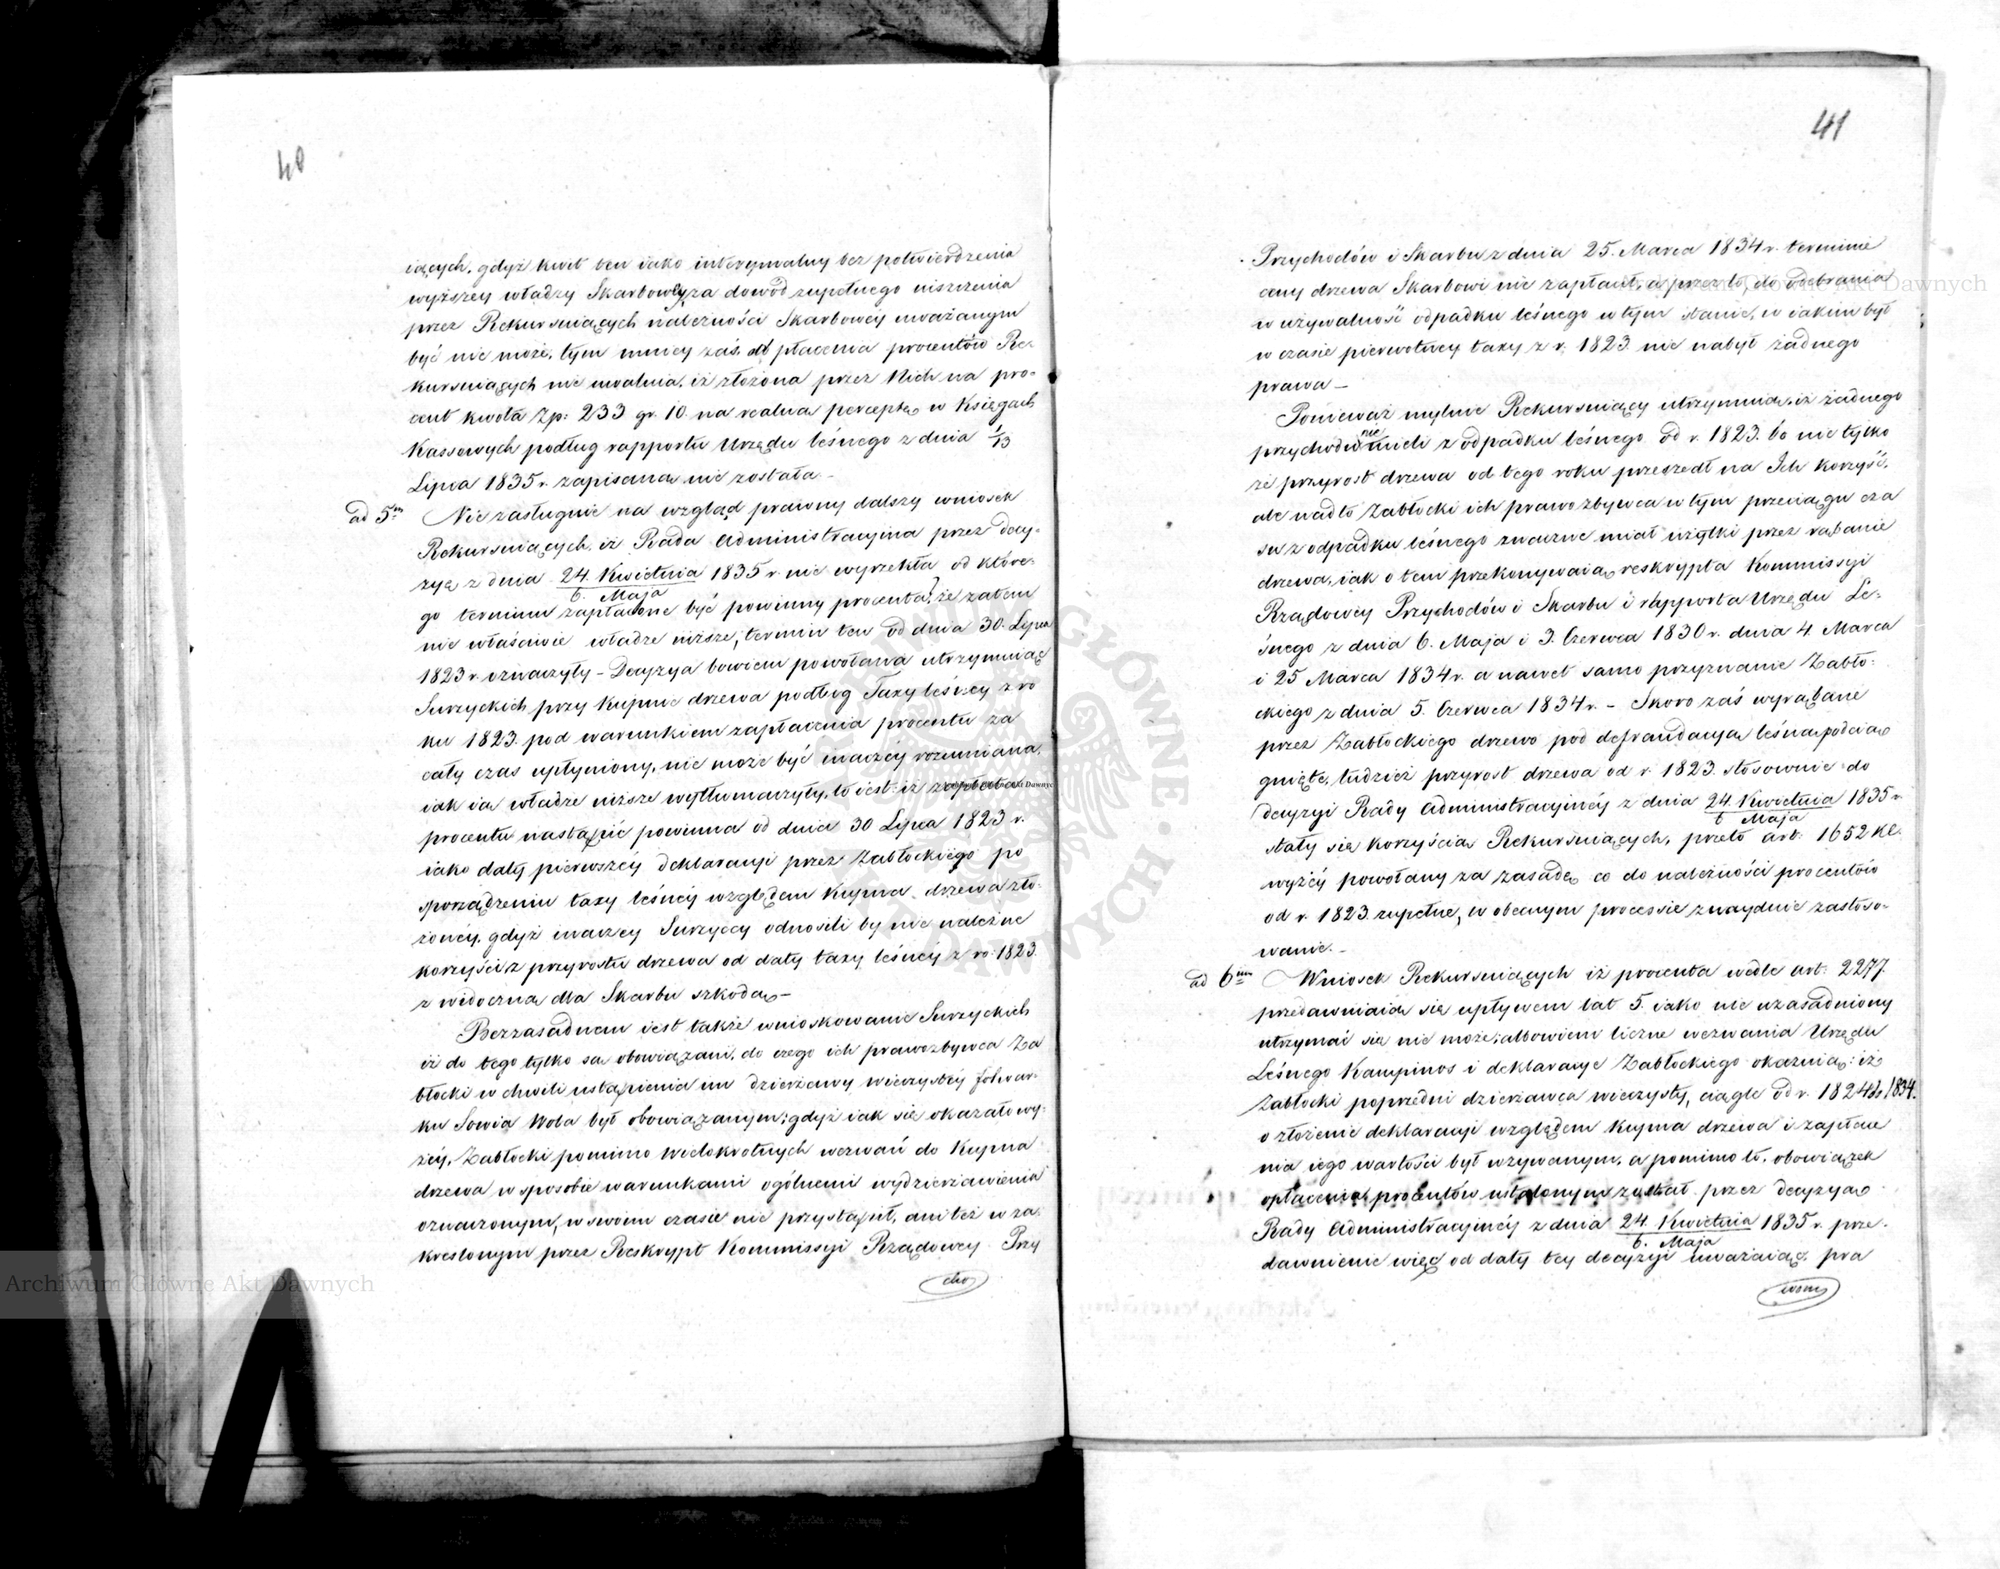 40
iących, gdyż kwit ten iako interymalny bez potwierdzenia
wyższey władzy Skarbowey, za dowód zupełnego uiszczenia
przez Rekursuiących należności Skarbowéy uważanym
być nie może, tym mniey zaś od płacenia procentów Re-
kursuiących nie uwalnia, iż złożona przez Nich na pro-
cent kwota Zp: 233 gr. 10. na realną perceptę w Księgach
Kassowych podług rapportu Urzędu leśnego z dnia 1/13
Lipca 1835 r. zapisaną nie została.-
ad 5m Nie zasługuie na wzgląd prawny dalszy wniosek
Rekursuiących, iż Rada Administracyina przez decy-
zyę z dnia 24. Kwietnia/6. Maja 1835 r. nie wyrzekła od które-
go terminu zapłacone być powinny procenta, że zatem
nie właściwie władze niższe, termin ten od dnia 30. Lipca
1823 r. oznaczyły - Decyzya bowiem powołana utrzymuiąc
Surzyckich przy Kupnie drzewa podług Taxy leśnéy z ro
ku 1823. pod warunkiem zapłacenia procentu za
cały czas upłyniony, nie może być inaczéy rozumiana,
iak ią władze niższe wytłumaczyły, to iest: iż zapłata
procentu nastąpić powinna od dnia 30 Lipca 1823 r.
iako daty pierwszéy deklaracyi przez Zabłockiego po
sporządzeniu taxy leśnéy względem Kupna drzewa zło-
żonéy, gdyż inaczey Surzyccy odnosili by nie należne
korzyści z przyrostu drzewa od daty taxy leśnéy z ro: 1823.
z widoczną dla Skarbu szkodą.-
Bezzasadnem iest także wnioskowanie Surzyckich
iż do tego tylko są obowiązani, do czego ich prawozbywca Za
błocki w chwili ustąpienia im dzierżawy wieczystéy folwar-
ku Sowia Wola był obowiązanym; gdyż iak się okazało wy-
żéy, Zabłocki pomimo wielokrotnych wezwań do Kupna
drzewa w sposobie warunkami ogólnemi wydzierżawienia
oznaczonym, w swoim czasie nie przystąpił, ani też w za-
kreślonym przez Reskrypt Kommissyi Rządowey Przy
cho
41
Przychodów i Skarbu z dnia 25. Marca 1834 r. terminie
ceny drzewa Skarbowi nie zapłacił, a przez to, do odebrania
w używalność odpadku leśnego w tym stanie, w iakim był
w czasie pierwotney taxy z r. 1823. nie nabył żadnego
prawa -
Ponieważ mylnie Rekursuiący utrzymuią, iż żadnego
przychodu nie mieli z odpadku leśnego od r. 1823. bo nie tylko
że przyrost drzewa od tego roku przeszedł na Ich korzyść,
ale nadto Zabłocki ich prawozbywca w tym przeciągu cza
su z odpadku leśnego znaczne miał użytki przez rąbanie
drzewa, iak o tem przekonywaią reskrypta Kommissyi
Rządowéy Przychodów i Skarbu i rapporta Urzędu Le-
śnego z dnia 6. Maja i 3. Czerwca 1830 r. dnia 4. Marca
i 25 Marca 1834 r. a nawet samo przyznanie Zabło-
ckiego z dnia 5. Czerwca 1834 r. - Skoro zaś wyrąbane
przez Zabłockiego drzewo pod defraudacyą leśną podcią
gnięte, tudzież przyrost drzewa od r. 1823. stosownie do
decyzyi Rady Administracyinéy z dnia 24. Kwietnia/6 Maja 1835 r.
stały się korzyścią Rekursuiących, przeto art: 1652 KC.
wyżéy powołany za zasadę co do należności procentów
od r. 1823. zupełne, w obecnym processie znayduie zastoso-
wanie.-
ad 6m Wniosek Rekursuiących iż procenta wedle art: 2277.
przedawniaią się upływem lat 5. iako nie uzasadniony
utrzymać się nie może, albowiem liczne wezwania Urzędu
Leśnego Kampinos i deklaracye Zabłockiego okazuią: iż
Zabłocki poprzedni dzierżawca wieczysty, ciągle od r. 1824 do 1834.
o złożenie deklaracyi względem Kupna drzewa i zapłace
nia iego wartości był wzywanym, a pomimo to, obowiązek
opłacenia procentów ustalonym został przez decyzyą
Rady Administracyinéy z dnia 24. Kwietnia/6. Maja 1835 r. prze-
dawnienie więc od daty tey decyzyi uważaiąc, pra
wem